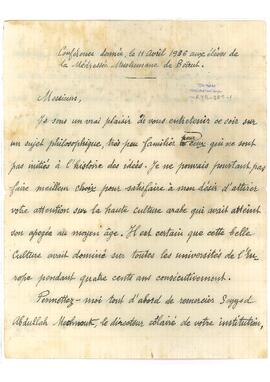 Conférence donnée, le 11 Avril 1936 aux élèves de
la Médressée Musulmane de Beirut.
Messieurs,
Je sens un vrai plaisir de vous entretenir ce soir sur
un sujet philosophique très peu familier pour ceux qui ne sont
pas initiés à l'histoire des idées. Je ne pourrais pourtant pas
faire meilleur choix pour satisfaire à mon désir d'attirer
votre attention sur la haute culture arabe qui avait atteint
son apogée au moyen âge. Il est certain que cette belle
culture avait dominé sur toutes les universités de l'Eu-
rope pendant quatre cents ans consécutivement.
Permettez-moi tout d'abord de remercier Sayyed
Abdullah le directeur de votre institution,